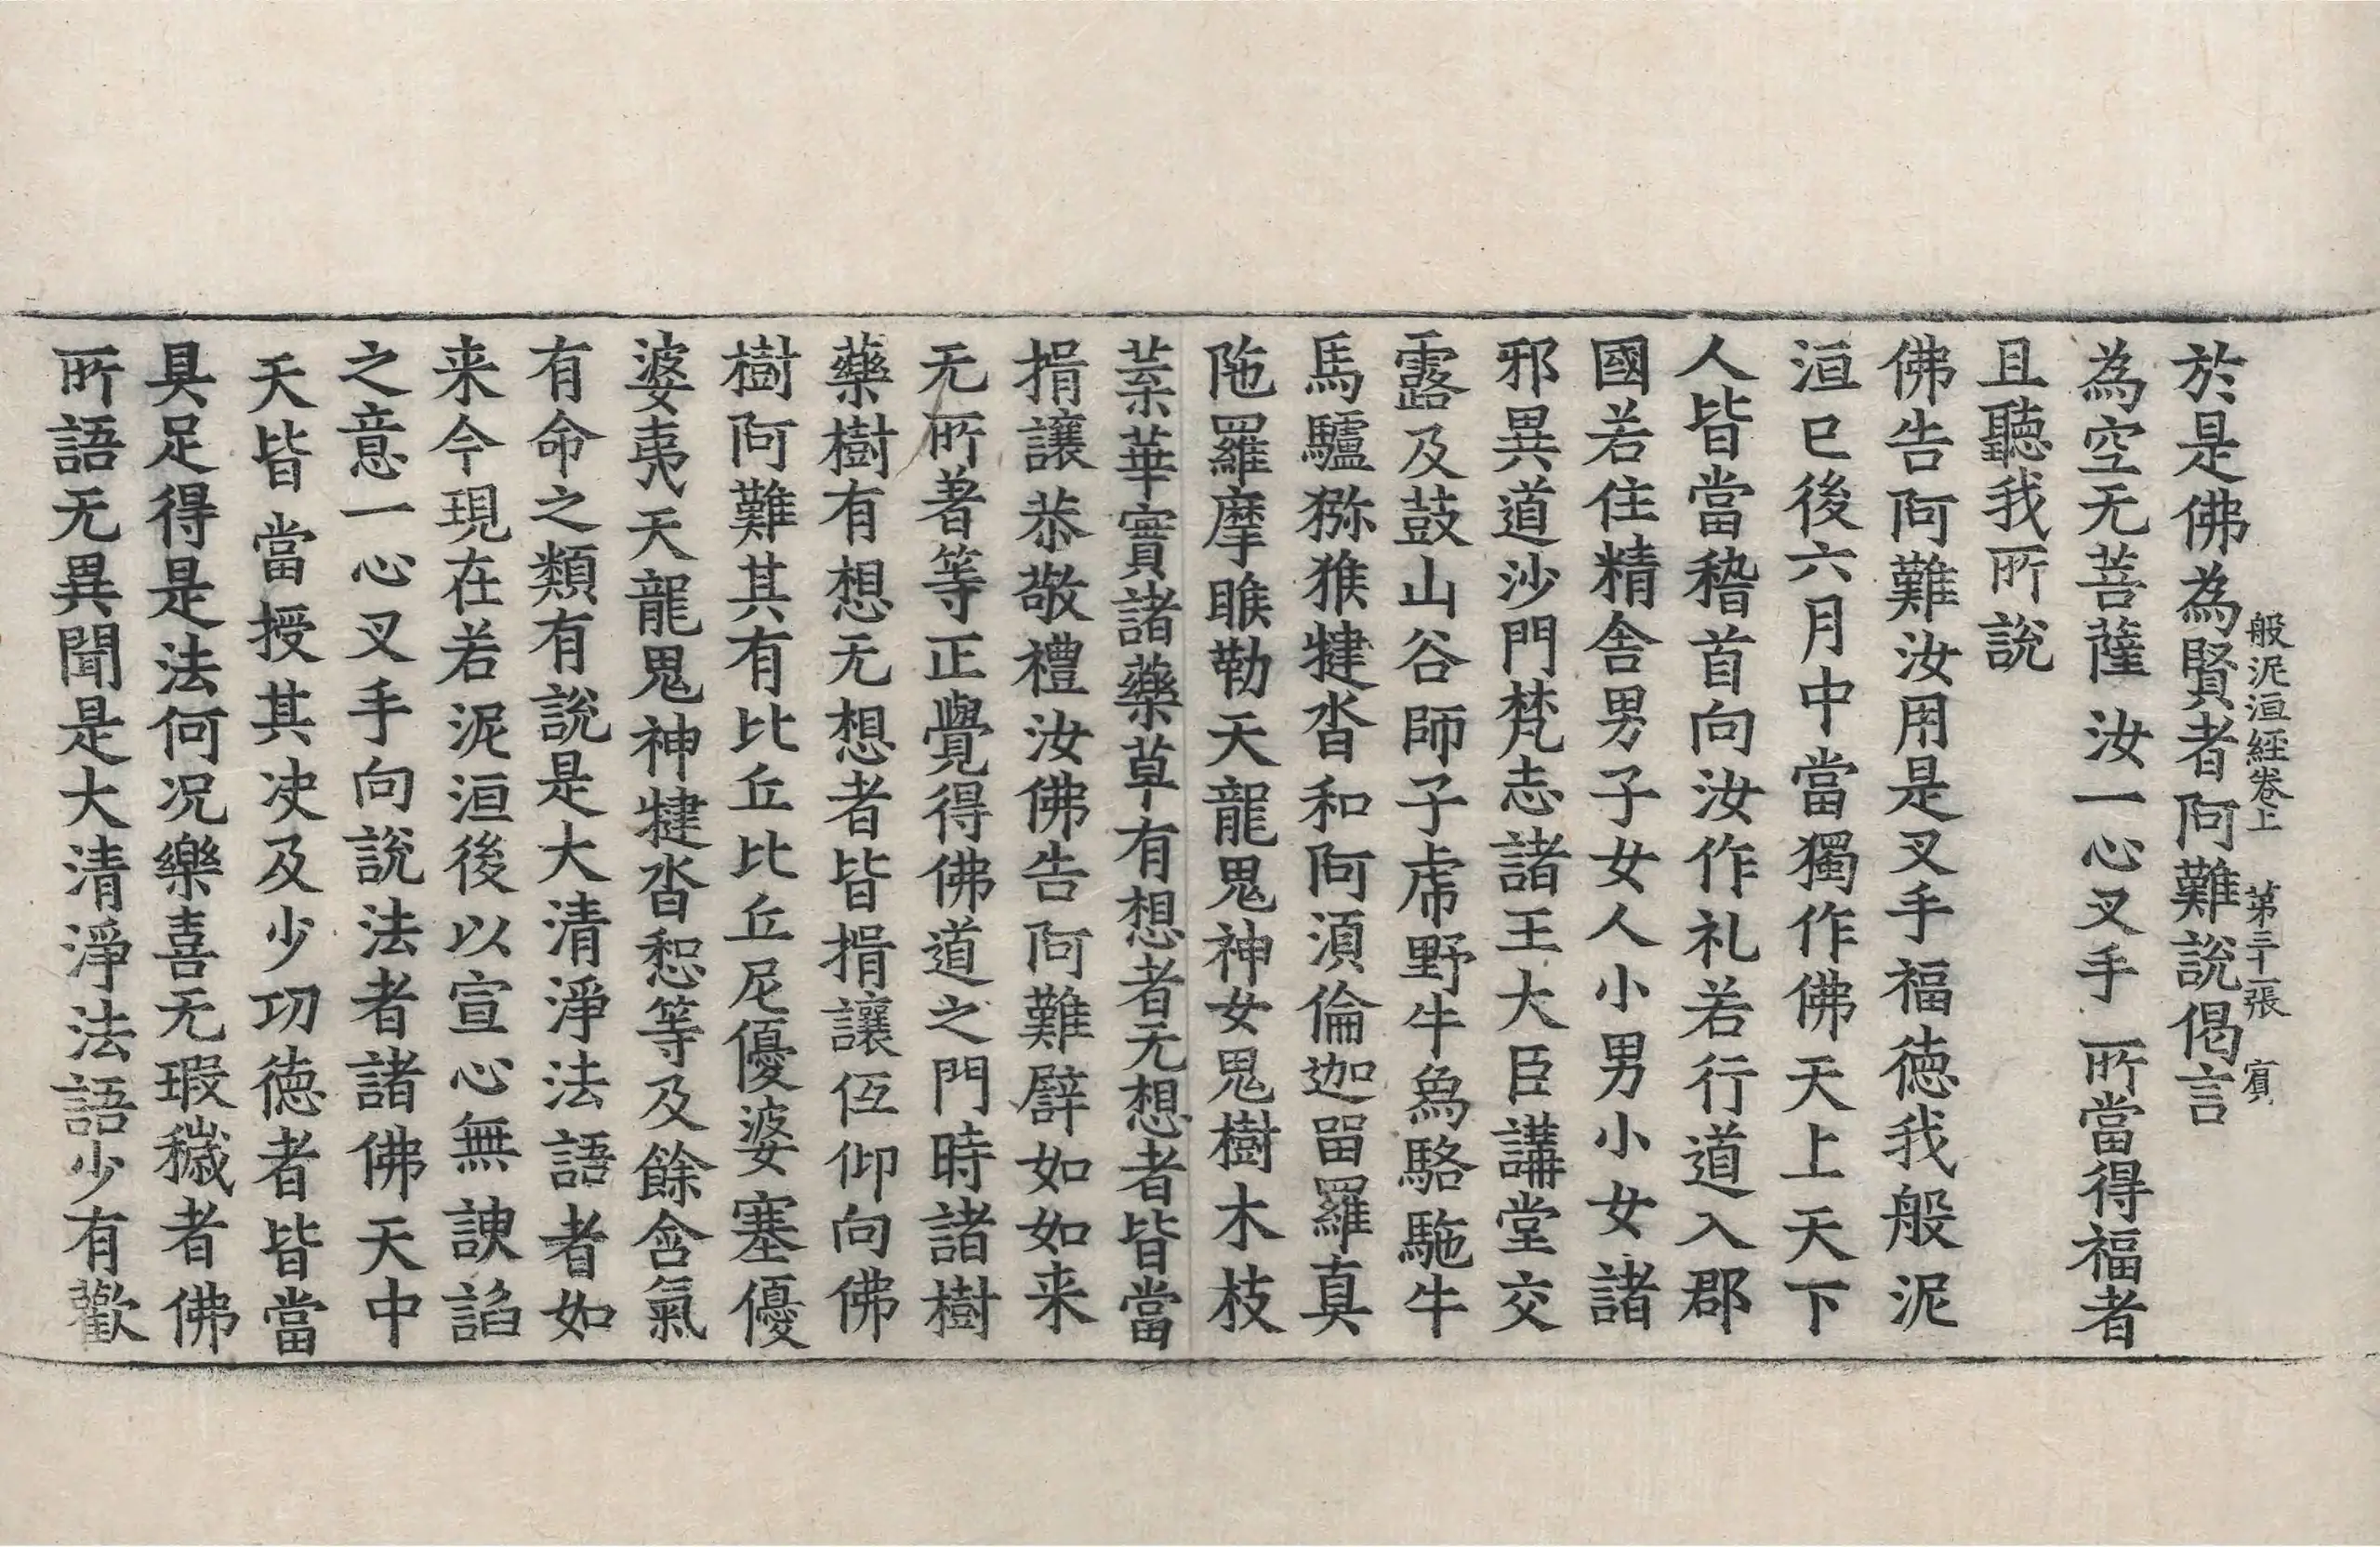 般泥洹經卷上 第二十一張 賓
於是佛為賢者阿難說偈言
為空无菩薩 汝一心叉手 所當得福者
且聽我所說
佛告阿難汝用是叉手福德我般泥
洹已後六月中當獨作佛天上天下
人皆當稽首向汝作礼若行道入郡
國若住精舍男子女人小男小女諸
邪異道沙門梵志諸王大臣講堂交
露及鼓山谷師子虎野牛象駱駞牛
馬驢猕猴揵沓和阿須倫迦留羅真
陁羅摩睺勒天龍鬼神女鬼樹木枝
葉華實諸藥草有想者无想者皆當
揖讓恭敬禮汝佛告阿難譬如如来
无所著等正覺得佛道之門時諸樹
藥樹有想无想者皆揖讓低仰向佛
樹阿難其有比丘比丘尼優婆塞優
婆夷天龍鬼神揵沓惒等及餘含氣
有命之類有說是大清淨法語者如
来今現在若泥洹後以宣心無諛諂
之意一心叉手向說法者諸佛天中
天皆當授其决及少功德者皆當
具足得是法何况樂喜无瑕穢者佛
所語无異聞是大清淨法語少有歡